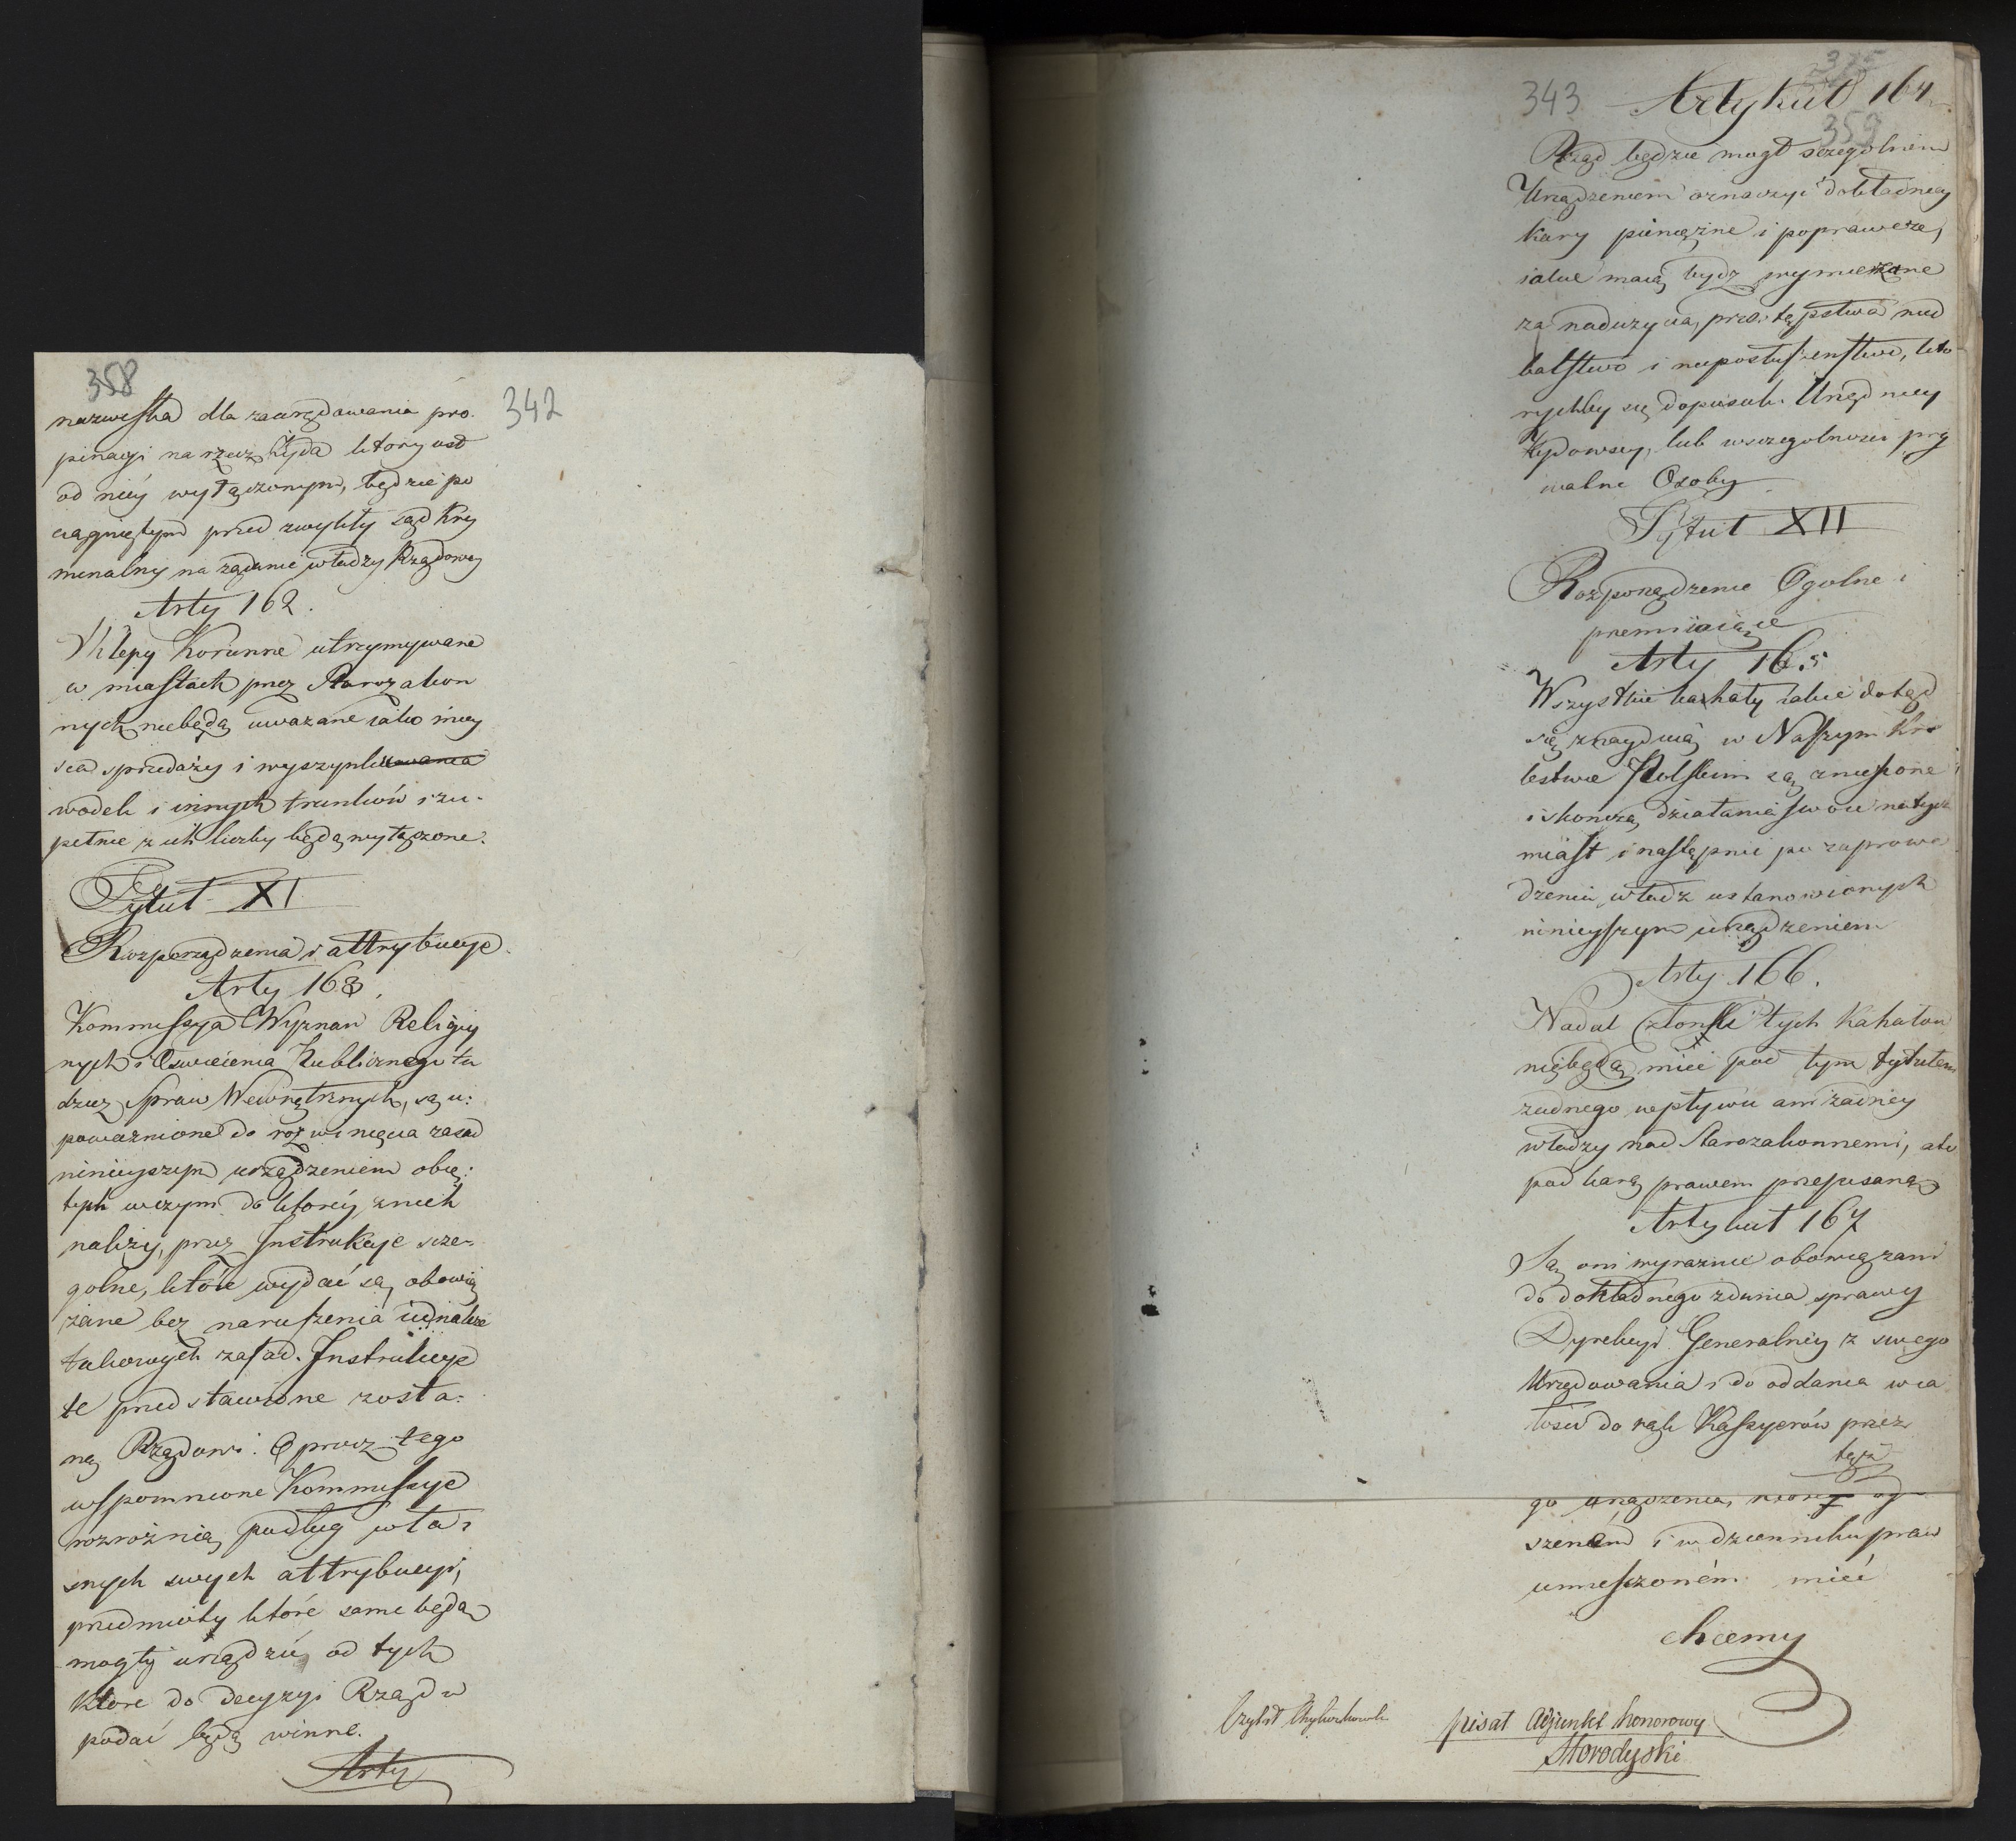 358
342
nazwiska dla zaarędowania pro-
pinacyi na rzecz Żyda który iest
od niéy wyłączonym, będzie po
ciągniętym przed zwykły sąd kry
minalny na żądanie władzy Rządowey
Arty 162.
Sklepy Korzenne utrzymywane
w miastach przez Starozakon
nych niebędą uważane iako miey
sca sprzedaży i wyszynku
wodek i innych trunków i zu-
pełnie z ich liczby będą wyłączone.
Tytuł XI
Rozporządzenia i attrybucye.
Arty 163.
Kommissya Wyznań Religiy
nych i Oświecenia Publicznego tu
dzież Spraw Wewnętrznych, są u:
poważnione do rozwinięcia zasad
ninieyszym urządzeniem obię:
tych w czym do któréy z nich
należy, przez Instrukcye szcze-
golne, które wydać są obowią
zane bez naruszenia iednakże
takowych zasad. Instrukcye
te przedstawione zosta:
ną Rządowi. Oprocz tego
wspomnione Kommissye
rozróżnią podług wła:
snych swych attrybucyi,
przedmioty które same będą
mogły urządzić, od tych
które do decyzyi Rządu
podać będą winne.
Arty
343
359
Artykuł 164
Rząd będzie mogł szczegolnem
Urządzeniem oznaczyć dokładniey
kary pieniężne i poprawcze,
iakie maią bydz wymierzane
za nadużycia, przestępstwa nied
balstwo i nieposłuszeństwo, któ-
rychby się dopuścili Urzędnicy
Żydowscy, lub w szczegolności pry
watne Osoby
Tytuł XII
Rozporządzenie Ogolne i
przemiiaiące
Arty 165
Wszystkie kahały iakie dotąd
się znayduią w Naszym Kro
lestwie Polskim są zniesione
i skończą działania swoie natych
miast i następnie po zaprowa
dzeniu władz ustanowionych
ninieyszym urządzeniem
Arty. 166.
Nadal Członki tych Kahałow
niebędą mieć pod tym tytułem
żadnego wpływu ani żadney
władzy nad Starozakonnemi, a to
pod karą prawem przepisaną
Artykuł 167
Są oni wyraźnie obowiązani
do dokładnego zdania sprawy
Dyrekcyi Generalnéy z swego
Urzędowania i do oddania w ca
łości do rąk Kassyerów przez
tęż
go urządzenia, któreg og-
szeniem i w dzienniku praw
umieszczoném mieć
chcemy
Czytał
pisał Adjunkt honorowy
Storodyski